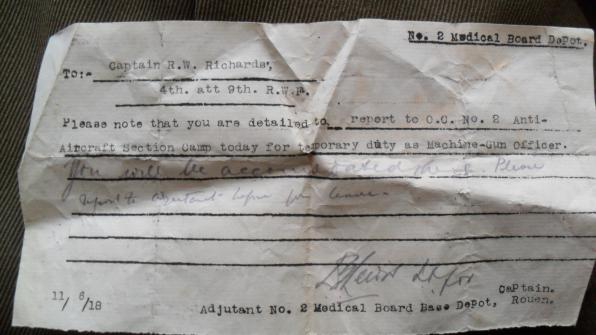 No. 2 Medical Board Depot.
Captain R.W. Richards,
To:-
4th. att 9th. R.W.F.
Please note that you are detailed to report to O.C. No. 2 Anti-
Aircraft Section Camp today for temporary duty as Machine-Gun Officer.
You will be accommodated there. Please
report to Adjutant before you leave.
Captain.
11/6/18
Adjutant No. 2 Medical Board Base Depot, Rouen.